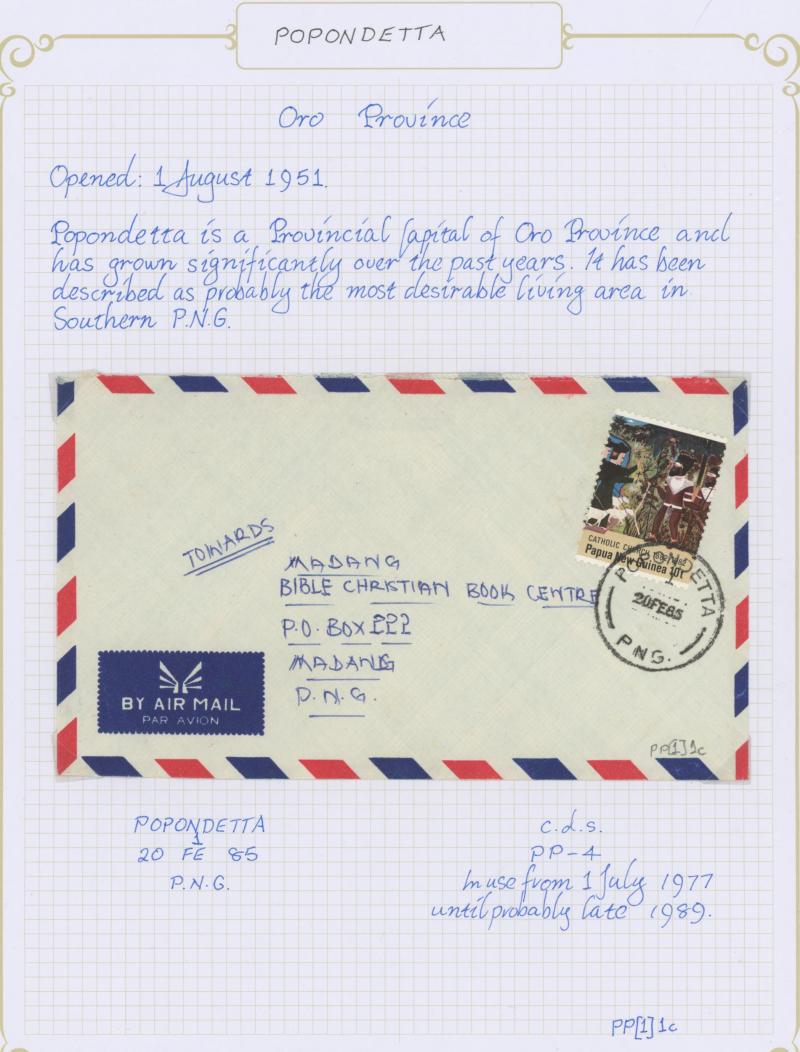 POPONDETTA
Oro Province
Opened: 1 August 1951.
Popondetta is a Provincial Capital of Oro Province and
has grown significantly over the past years. It has been
described as probably the most desirable living area in
Southern P.N.G.
CATHOLIC CHURCH 1882-1982
Papua New Guinea 10t
POPONDETTA
1
20FE85
P.N.G.
TOWARDS
MADANG
BIBLE CHRISTIAN BOOK CENTRE
P.O. BOX
MADANG
P.N.G.
BY AIR MAIL
PAR AVION
PP[1]1c
POPONDETTA
1
20 FE 85
P.N.G.
c.d.s.
PP-4
In use from 1 July 1977
until probably late 1989.
PP[1]1c